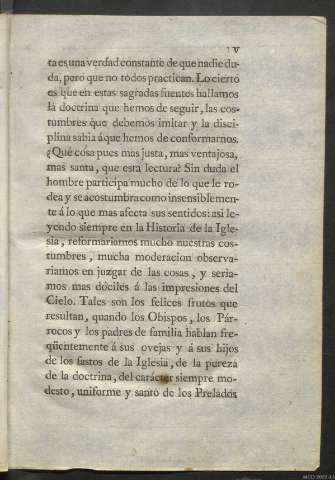 IV
ta es una verdad constante de que nadie du-
da, pero que no todos practican. Lo cierto
es que en estas sagradas fuentes hallamos
la doctrina que hemos de seguir, las cos-
tumbres que debemos imitar y la disci-
plina sabia á que hemos de conformarnos.
¿Qué cosa pues mas justa, mas ventajosa,
mas santa, que esta lectura? Sin duda el
hombre participa mucho de lo que le ro-
dea y se acostumbra como insensiblemen-
te á lo que mas afecta sus sentidos: asi le-
yendo siempre en la Historia de la Igle-
sia, reformariamos mucho nuestras cos-
tumbres, mucha moderacion observa-
riamos en juzgar de las cosas, y seria-
mos mas dóciles á las impresiones del
Cielo. Tales son los felices frutos que
resultan, quando los Obispos, los Pár-
rocos y los padres de familia hablan fre-
qüentemente á sus ovejas y á sus hijos
de los fastos de la Iglesia, de la pureza
de la doctrina, del carácter siempre mo-
desto, uniforme y santo de los Prelados